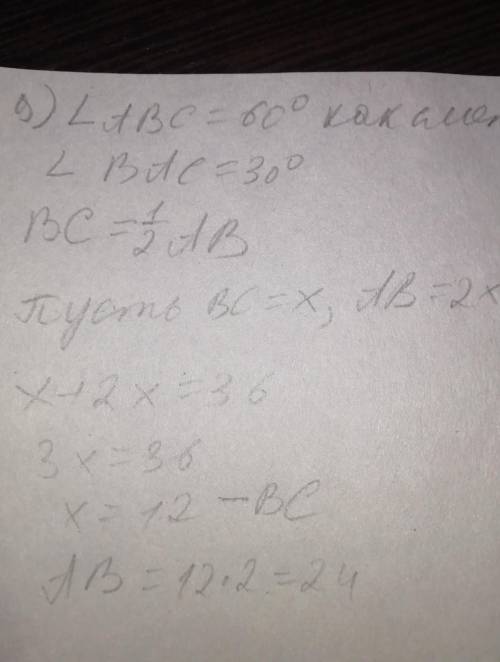 ∠ABC=60° как смеж
∠BAC=30°
BC=1/2 AB
Пусть BC=x, AB=2x
x+2x=36
3x=36
x=12 – BC
AB=12·2=24